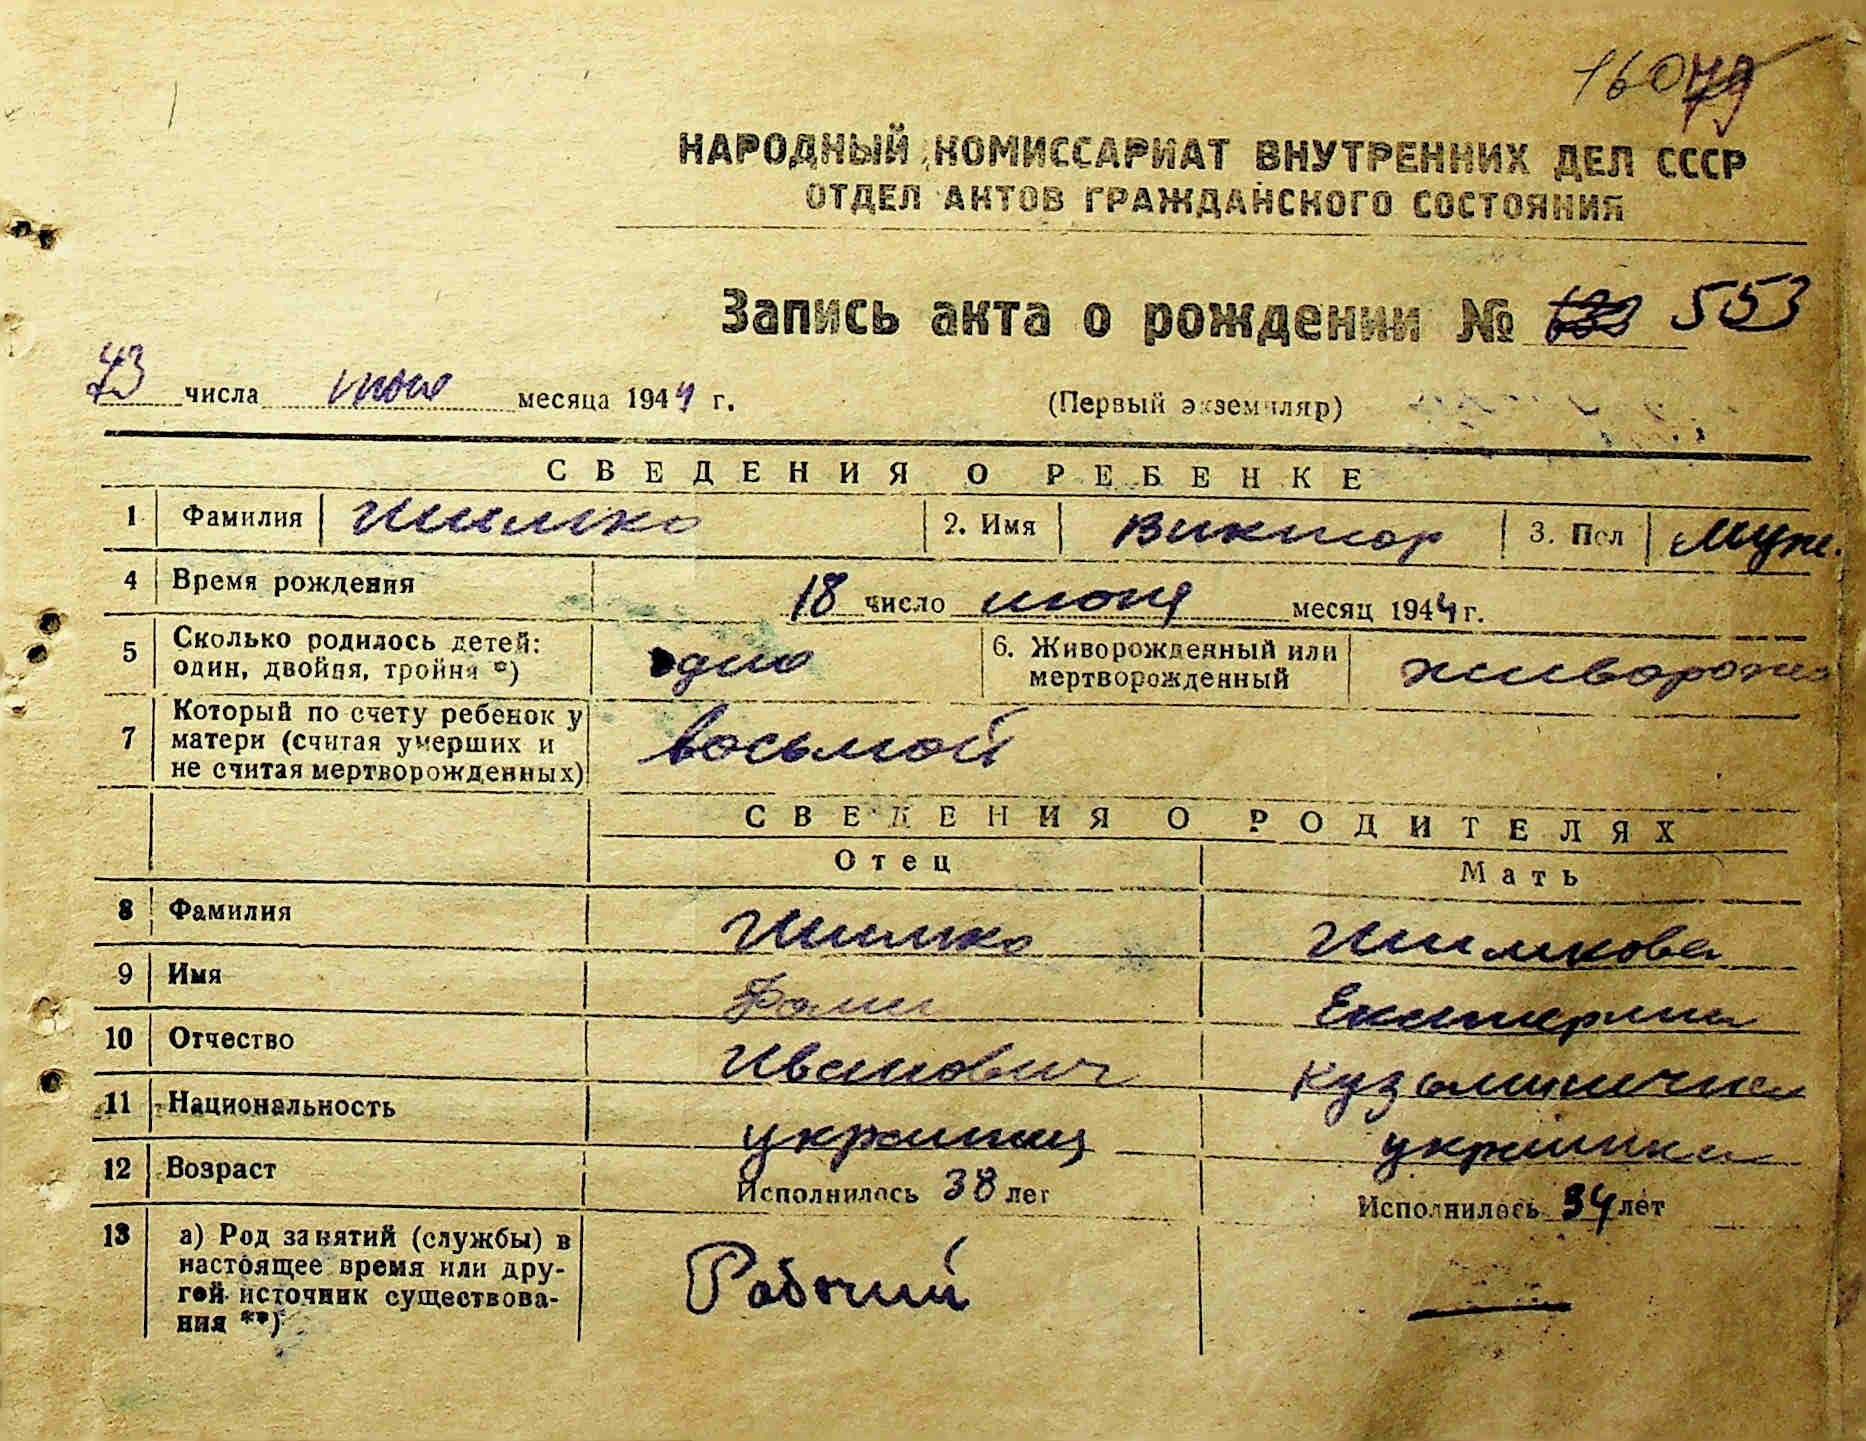 НАРОДНЫЙ КОМИССАРИАТ ВНУТРЕННИХ ДЕЛ СССР
ОТДЕЛ АКТОВ ГРАЖДАНСКОГО СОСТОЯНИЯ
Запись акта о рождении № 553
23 числа июня месяца 1944 г. (Первый экземпляр)
СВЕДЕНИЯ О РЕБЕНКЕ
1 Фамилия Шимко 2. Имя Виктор 3. Пол Муж.
4 Время рождения 18 число июня месяц 1944 г.
5 Сколько родилось детей: один, двойня, тройня *) одно 6. Живорожденный или мертворожденный живорожд
7 Который по счету ребенок у матери (считая умерших и не считая мертворожденных) восьмой
СВЕДЕНИЯ О РОДИТЕЛЯХ
Отец Мать
8 Фамилия Шимко Шимкова
9 Имя Екатерина
10 Отчество Иванович Кузьминична
11 Национальность украинец украинка
12 Возраст Исполнилось 38 лет Исполнилось 34 лет
13 а) Род занятий (службы) в
настоящее время или дру-
гой источник существова-
ния **) Рабочий —